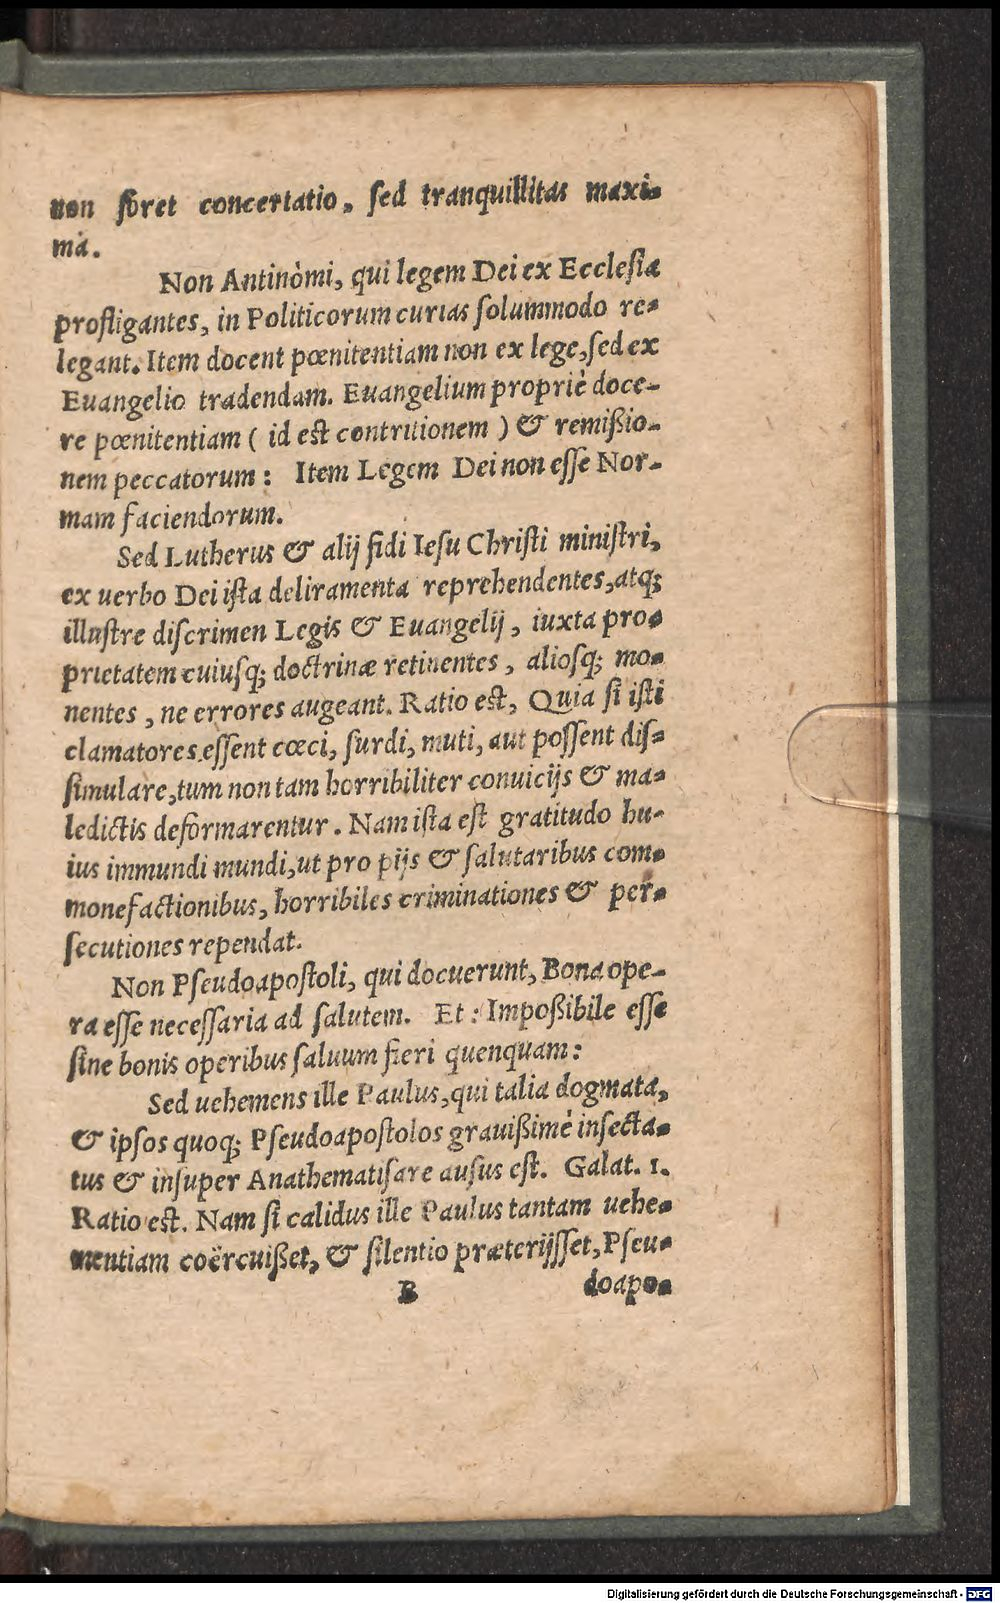 non foret concertatio, sed tranquillitas maxi-
ma.
Non Antinòmi, qui legem Dei ex Ecclesia
profligantes, in Politicorum curias solummodo re-
legant. Item docent pœnitentiam non ex lege, sed ex
Euangelio tradendam. Euangelium propriè doce-
re pœnitentiam ( id est contritionem ) & remißio-
nem peccatorum: Item Legem Dei non esse Nor-
mam faciendorum.
Sed Lutherus & alij fidi Iesu Christi ministri,
ex uerbo Dei ista deliramenta reprehendentes, atq;
illustre discrimen Legis & Euangelij, iuxta pro-
prietatem cuiusq; doctrinæ retinentes, aliosq; mo-
nentes, ne errores augeant. Ratio est, Quia si isti
clamatores essent cœci, surdi, muti, aut possent dis-
simulare, tum non tam horribiliter conuicijs & ma-
ledictis deformarentur. Nam ista est gratitudo hu-
ius immundi mundi, ut pro pijs & salutaribus com-
monefactionibus, horribiles criminationes & per-
secutiones rependat.
Non Pseudoapostoli, qui docuerunt, Bona ope-
ra esse necessaria ad salutem. Et: Impoßibile esse
sine bonis operibus saluum fieri quenquam:
Sed uehemens ille Paulus, qui talia dogmata,
& ipsos quoq; Pseudoapostolos grauißimè insecta-
tus & insuper Anathematisare ausus est. Galat. 1.
Ratio est. Nam si calidus ille Paulus tantam uehe-
mentiam coërcuißet, & silentio præterijsset, Pseu-
B doapo-
Digitalisierung gefördert durch die Deutsche Forschungsgemeinschaft - DFG